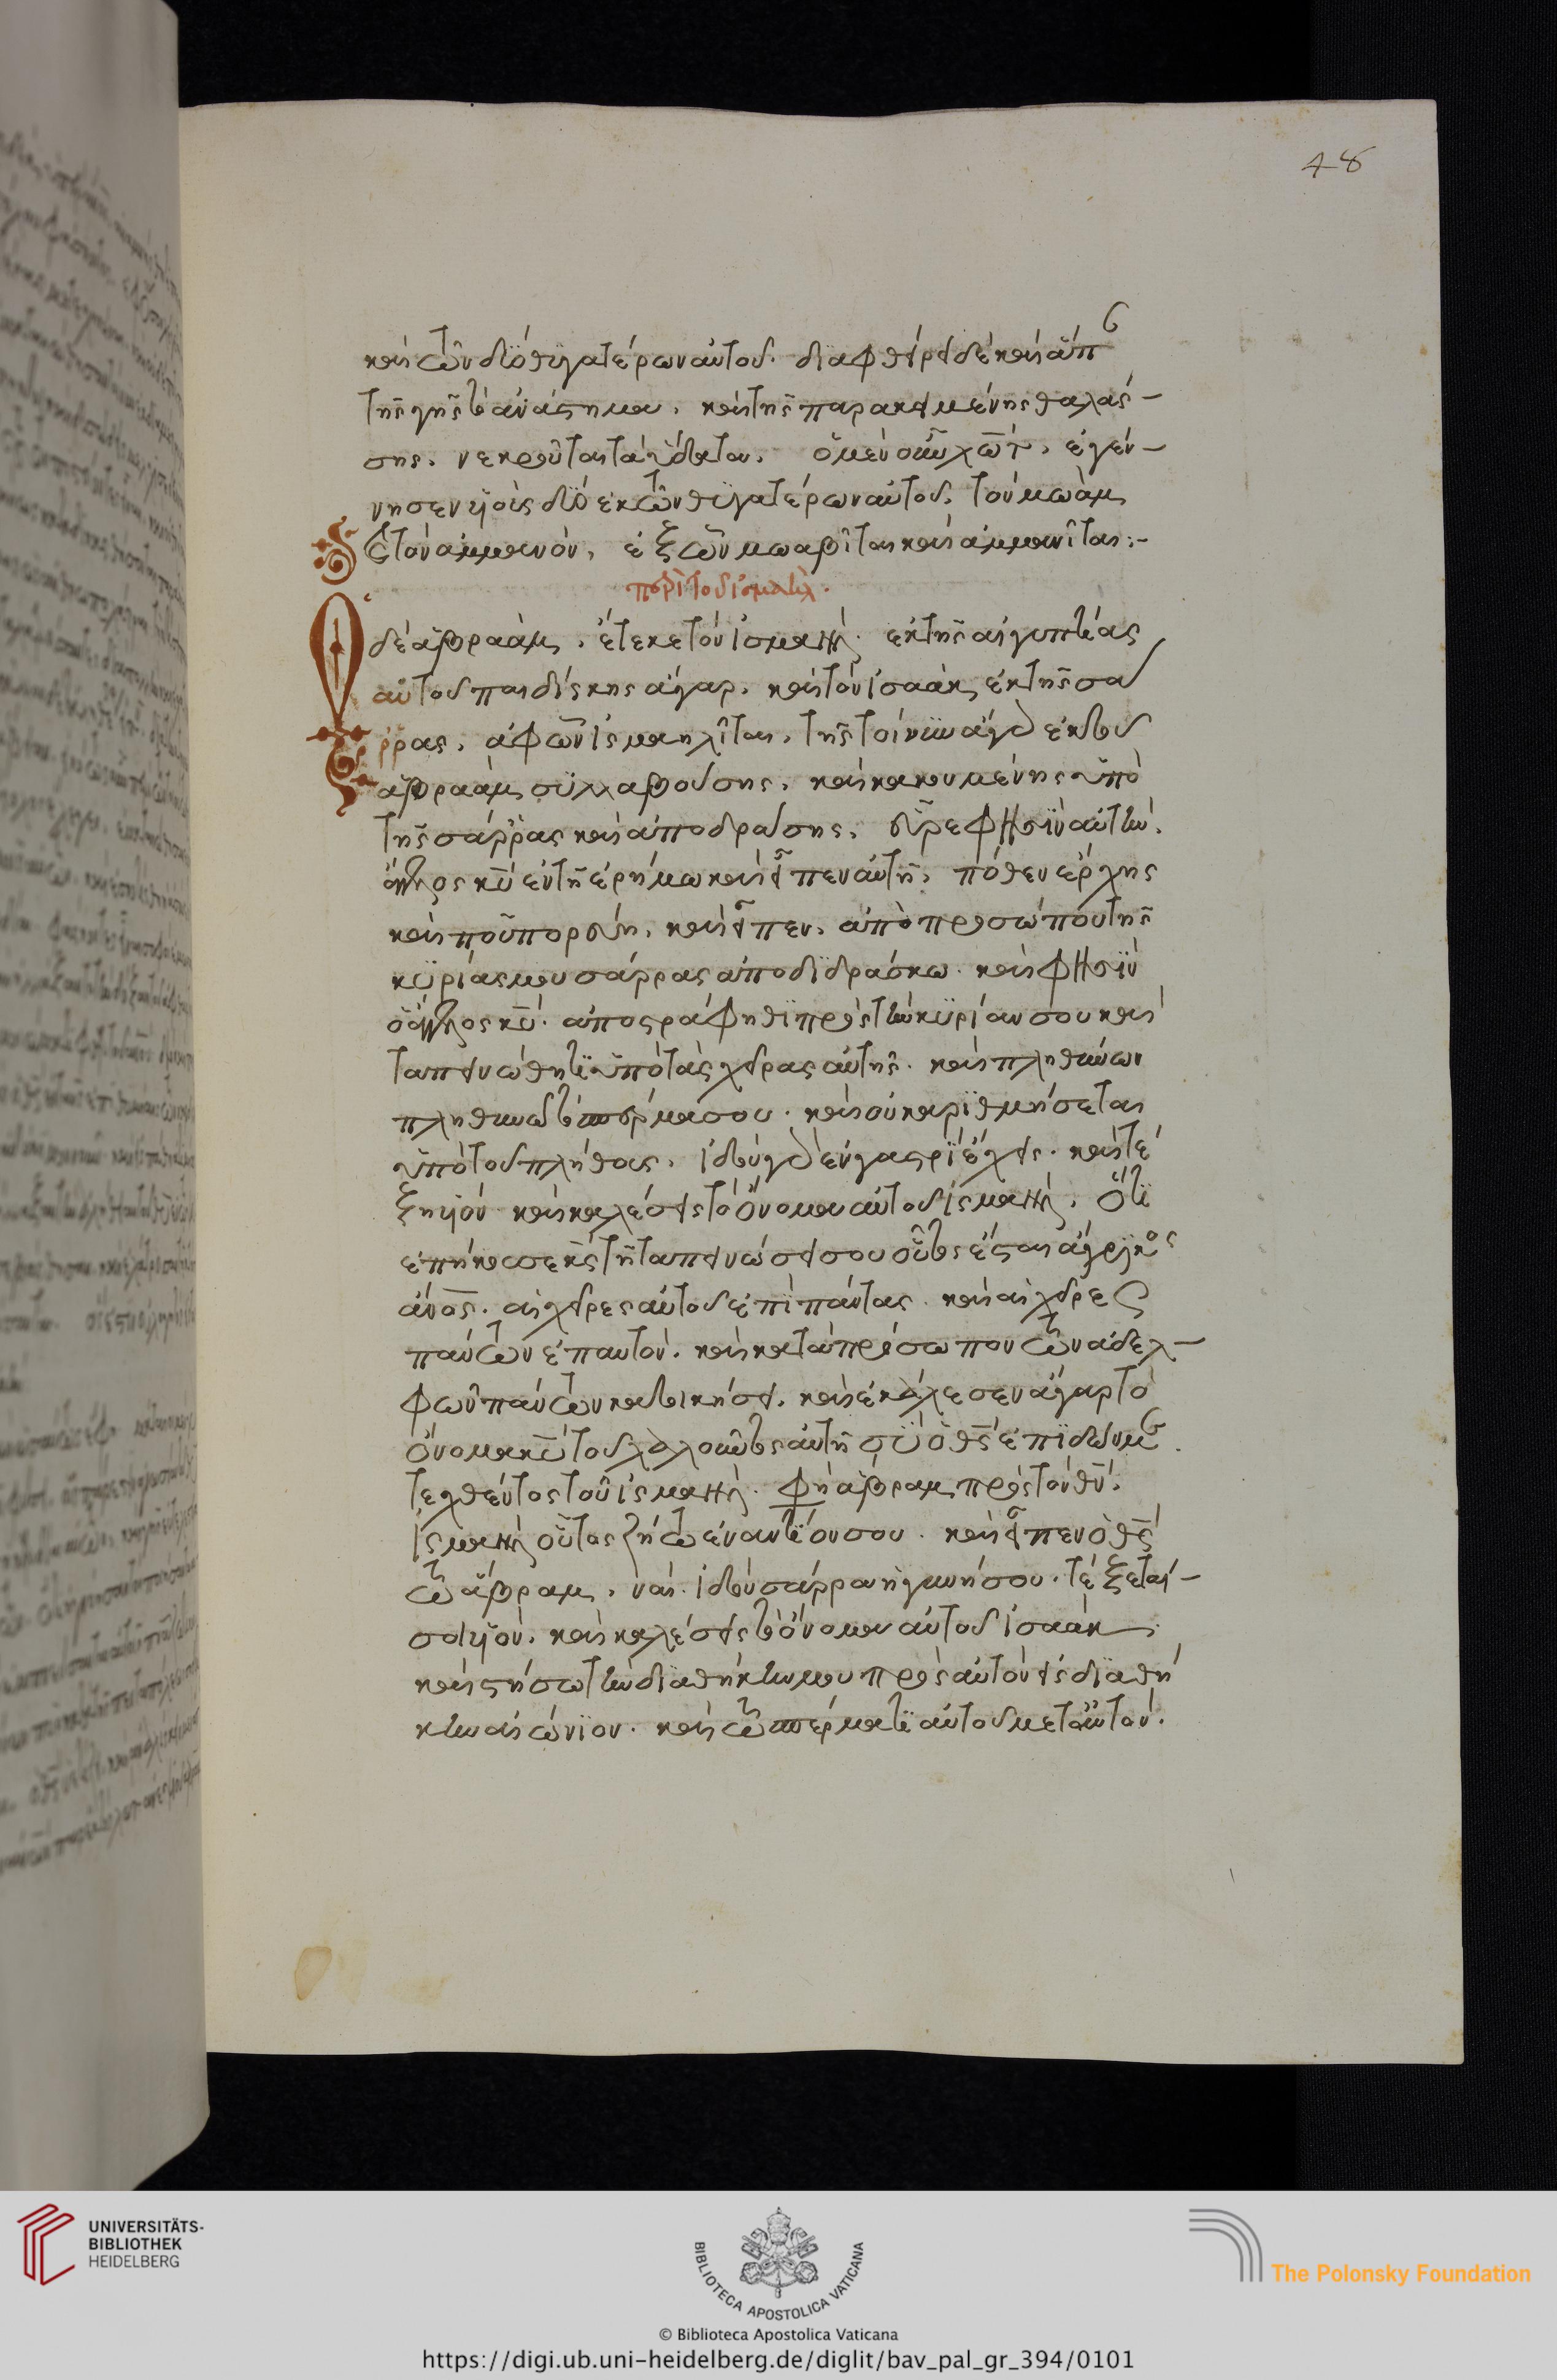 48
καὶ τῶν δύο θυγατέρων αὐτοῦ. διαφθείρει δὲ καὶ ἅπαν
τῆς γῆς τὸ ἀνάστημα. καὶ τῆς παρακειμένης θαλάσ-
σης. νεκροῦται τὰ ὕδατα. ὁ μὲν οὖν λώτ, ἐγέν-
νησεν υἱοὺς δύο ἐκ τῶν θυγατέρων αὐτοῦ. τὸν μωὰμ
καὶ τὸν ἀμμανόν, ἐξ ὧν μωαβῖται καὶ ἀμμανῖται:-
περὶ τοῦ ἰσμαήλ.
Ὁ δὲ ἀβραάμ, ἔτεκε τὸν ἰσμαήλ. ἐκ τῆς αἰγυπτίας
αὐτοῦ παιδίσκης ἄγαρ. καὶ τὸν ἰσαὰκ ἐκ τῆς σά
ρρας. ἀφ' ὧν ἰσμαηλῖται. τῆς τοίνυν ἄγαρ ἐκ τοῦ
ἀβραὰμ συλλαβούσης. καὶ κακουμένης ὑπὸ
τῆς σάρρας καὶ ἀποδράσης. εὗρε φησὶν αὐτὴν.
ἄγγελος κυ ἐν τῆ ἐρήμω καὶ εἶπεν αὐτῆ, πόθεν ἔρχης
καὶ ποῦ πορεύη. καὶ εἶπεν. ἀπὸ προσώπου τῆς
κυρίας μου σάρρας ἀποδιδράσκω. καὶ φησὶν
ὁ ἄγγελος κυ. ἀποστράφηθι πρὸς τὴν κυρίαν σου καὶ
ταπεινώθητι ὑπὸ τὰς χεῖρας αὐτῆς. καὶ πληθύνων
πληθυνῶ τὸ σπέρμα σου. καὶ οὐκ ἀριθμήσεται
ὑπὸ τοῦ πλήθους. ἰδοὺ γὰρ ἐν γαστρὶ ἔχεις. καὶ τέ
ξη υἱόν καὶ καλέσεις τὸ ὄνομα αὐτοῦ ἰσμαήλ. ὅτι
ἐπήκουσε κς τῆ ταπεινώσει σου οὗτος ἔσται ἄγροικος
ἄνος. αἱ χεῖρες αὐτοῦ ἐπὶ πάντας. καὶ αἱ χεῖρες
πάντων ἐπ' αὐτόν. καὶ κατὰ πρόσωπον τῶν ἀδελ-
φῶν πάντων κατοικήσει. καὶ ἐκάλεσεν ἄγαρ τὸ
ὄνομα κυ τοῦ λαλοῦντος αὐτῆ σὺ ὁ θς ἐπιδών με
τεχθέντος τοῦ ἰσμαήλ. φη ἄβραμ πρὸς τὸν θν.
ἰσμαὴλ οὗτος ζήτω ἐναντίον σου. καὶ εἶπεν ὁ θς
τῶ ἄβραμ. ναί. ἰδοὺ σάρρα ἡ γυνή σου. τέξεταί-
σοι υἱόν. καὶ καλέσεις τὸ ὄνομα αὐτοῦ ἰσαάκ
καὶ στήσω τὴν διαθήκην μου πρὸς αὐτὸν εἰς διαθή
κην αἰώνιον. καὶ τῶ σπέρματι αὐτοῦ μετ' αὐτόν.
UNIVERSITÄTS-
BIBLIOTHEK
HEIDELBERG
BIBLIOTECA APOSTOLICA VATICANA
The Polonsky Foundation
© Biblioteca Apostolica Vaticana
https://digi.ub.uni-heidelberg.de/diglit/bav_pal_gr_394/0101